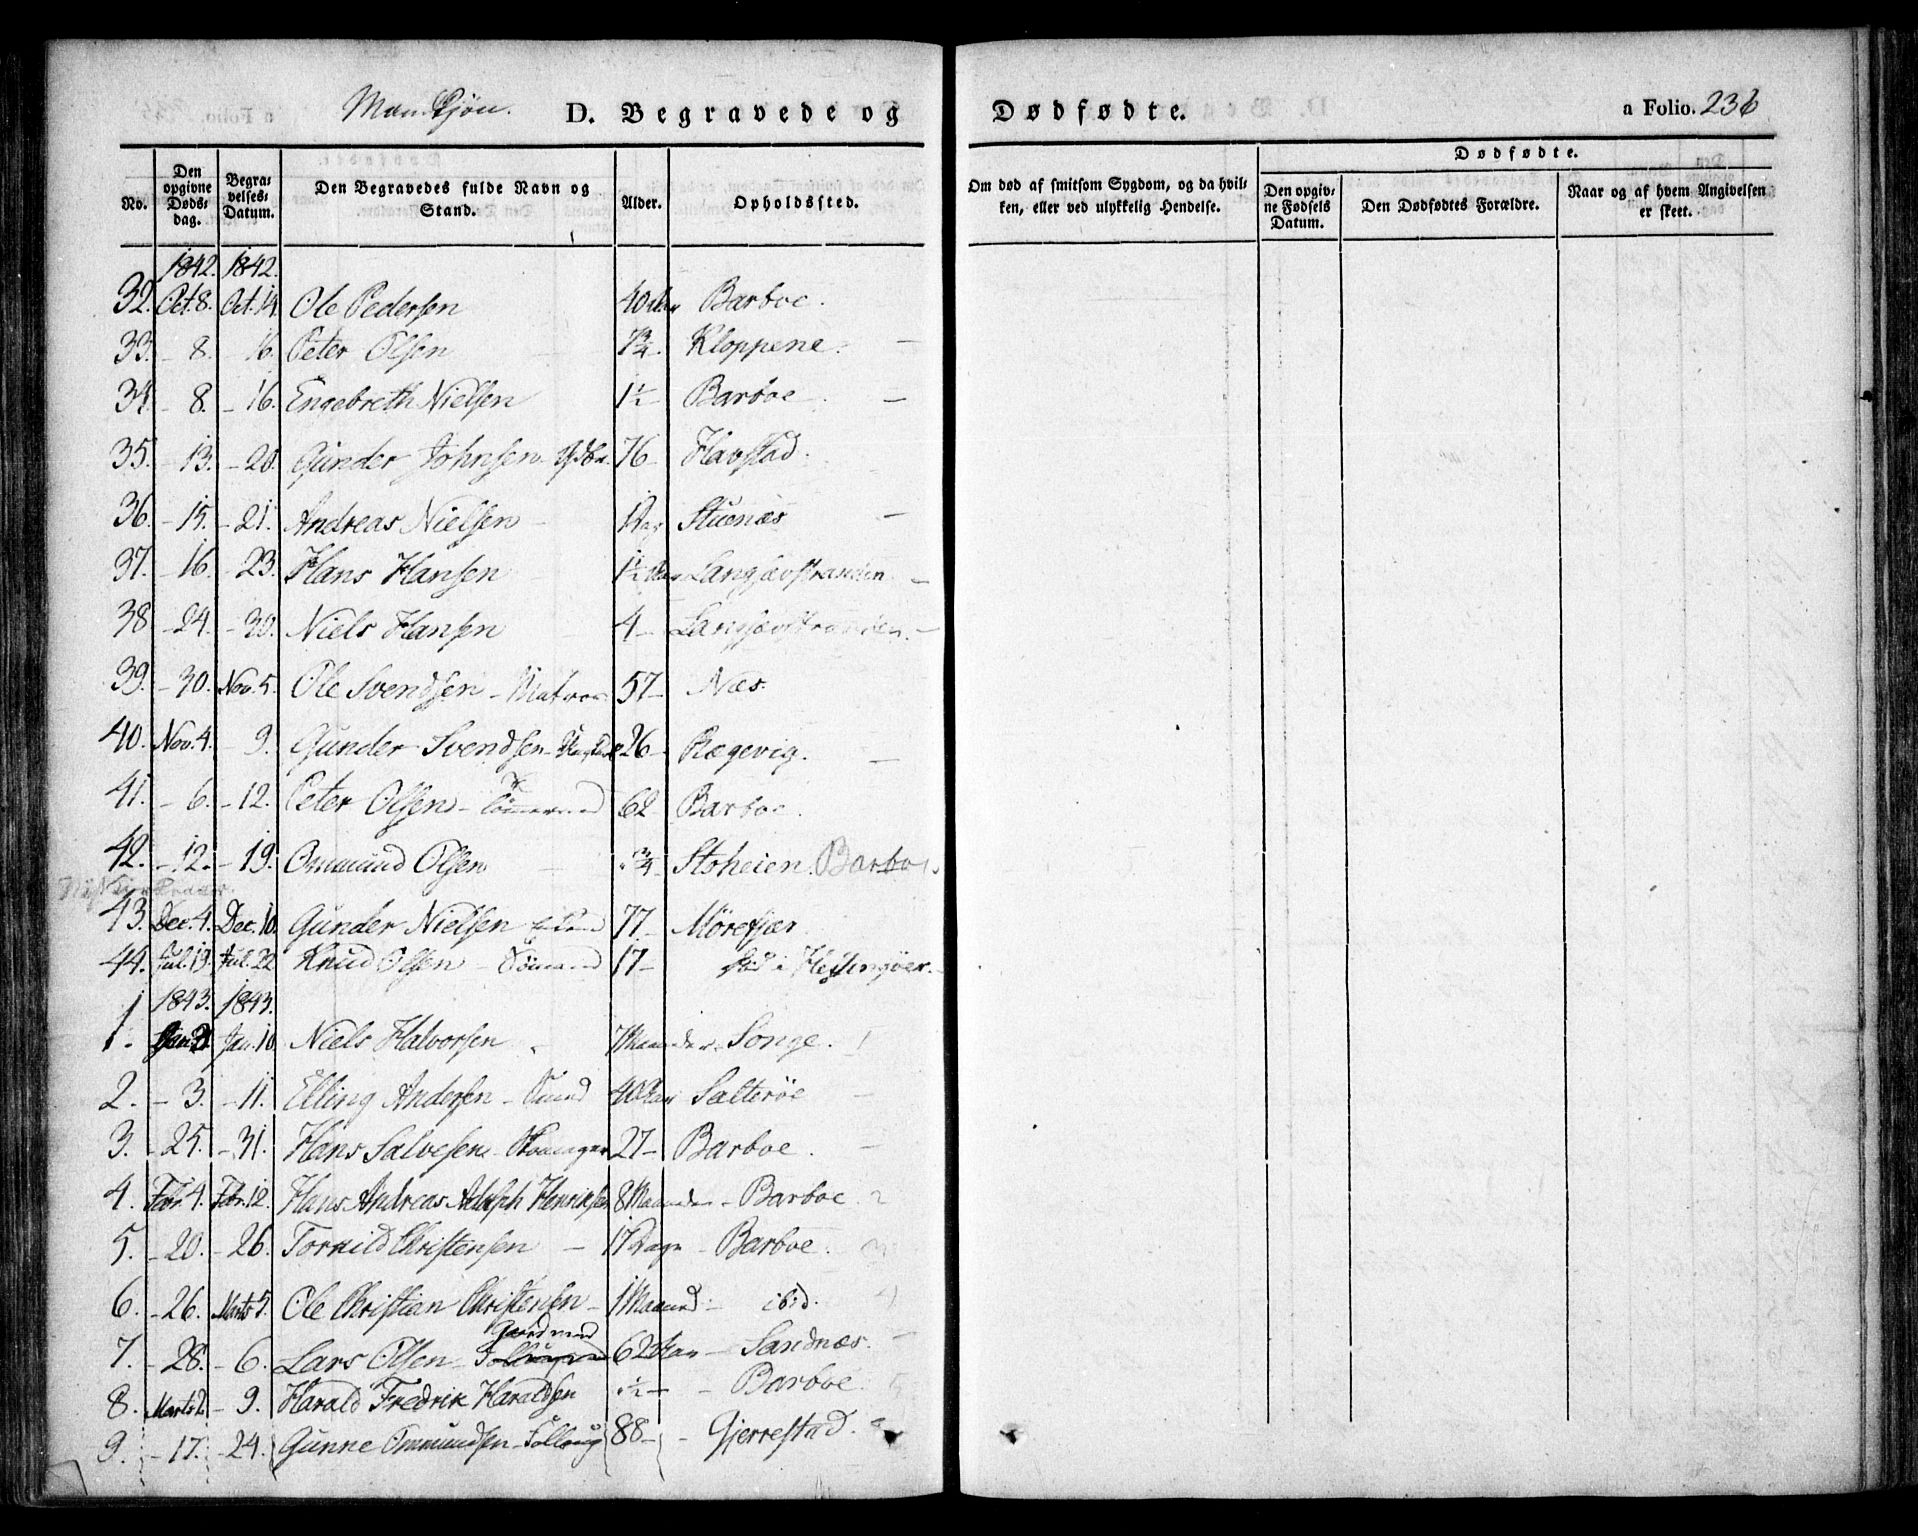 Mandkjøn. D. Begravede og Dødfødte. a Folio. 236
No.
Den opgivne Døds-dag.
Begra-velses-Datum.
Den Begravedes fulde Navn og Stand.
Alder.
Opholdssted.
Om død af smitsom Sygdom, og da hvil-ken, eller ved ulykkelig Hendelse.
Dødfødte.
Den opgiv-ne Fødsels Datum.
Den Dødfødtes Forældre.
Naar og af hvem Angivelsen er skeet.
1842. 1842.
32. Oct. 8. Oct. 14. Ole Pedersen 40 Barboe.
33. - 8. - 16. Peter Olsen 1 3/4. Kloppene. -
34. - 8. - 16. Engebreth Nielsen 1 1/2 - Barboe -
35. - 13. - 20. Gunder Johnsen 76 - Havstad.
36. - 15. - 21. Andreas Nielsen - 1 Dag Stuenæs -
37. - 16. - 23. Hans Hansen 1 1/2 Langsævstranden -
38 - 24. - 30. Niels Hansen 4 - Langsævstranden. -
39. - 30. Nov. 5. Ole Svendsen - Matros 57 - Næs.
40. Nov. 4. - 9. Gunder Svendsen - 26 - Rægevig. -
41. - 6. - 12. Peter Olsen - Tømmermand 62 Barboe.
42. - 12. - 19. Ommund Olsen 3/4 Stoheien. Barboe.
43. Dec. 4. Dec. 10. Gunder Nielsen 77 - Mørefjær
44. Jul. 19. Jul. 22 Knud Olsen - Sömand 17 - död i Helsingöer. -
1843. 1843.
1. Jan. Jan. 10 Niels Halvorsen 7 Maaneder - Songe. 1
2. - 3. - 11. Elling Andersen - 40 Aar Salteröe -
3. - 25. - 31. Hans Salvesen - 27 - Barboe. -
4. Febr. 4. Febr. 12. Hans Andreas Adolph Henriksen 8 Maaneder - Barboe 2
5. - 20. - 26. Torkild Christensen - 17 Dage - Barboe. 3
6. - 26. Marts 5. Ole Christian Christensen - 1 Maaned - ibid. 4
Gaardmand
7. - 28. - 6. Lars Olsen - 62 Aar - Sandnæs. -
8. Marts 2 - 9. Harald Fredrik Haraldsen 1/2 - - Barboe.
9. - 17. - 24. Gunne Ommundsen - Follaug 88 - - Gjerrestad.